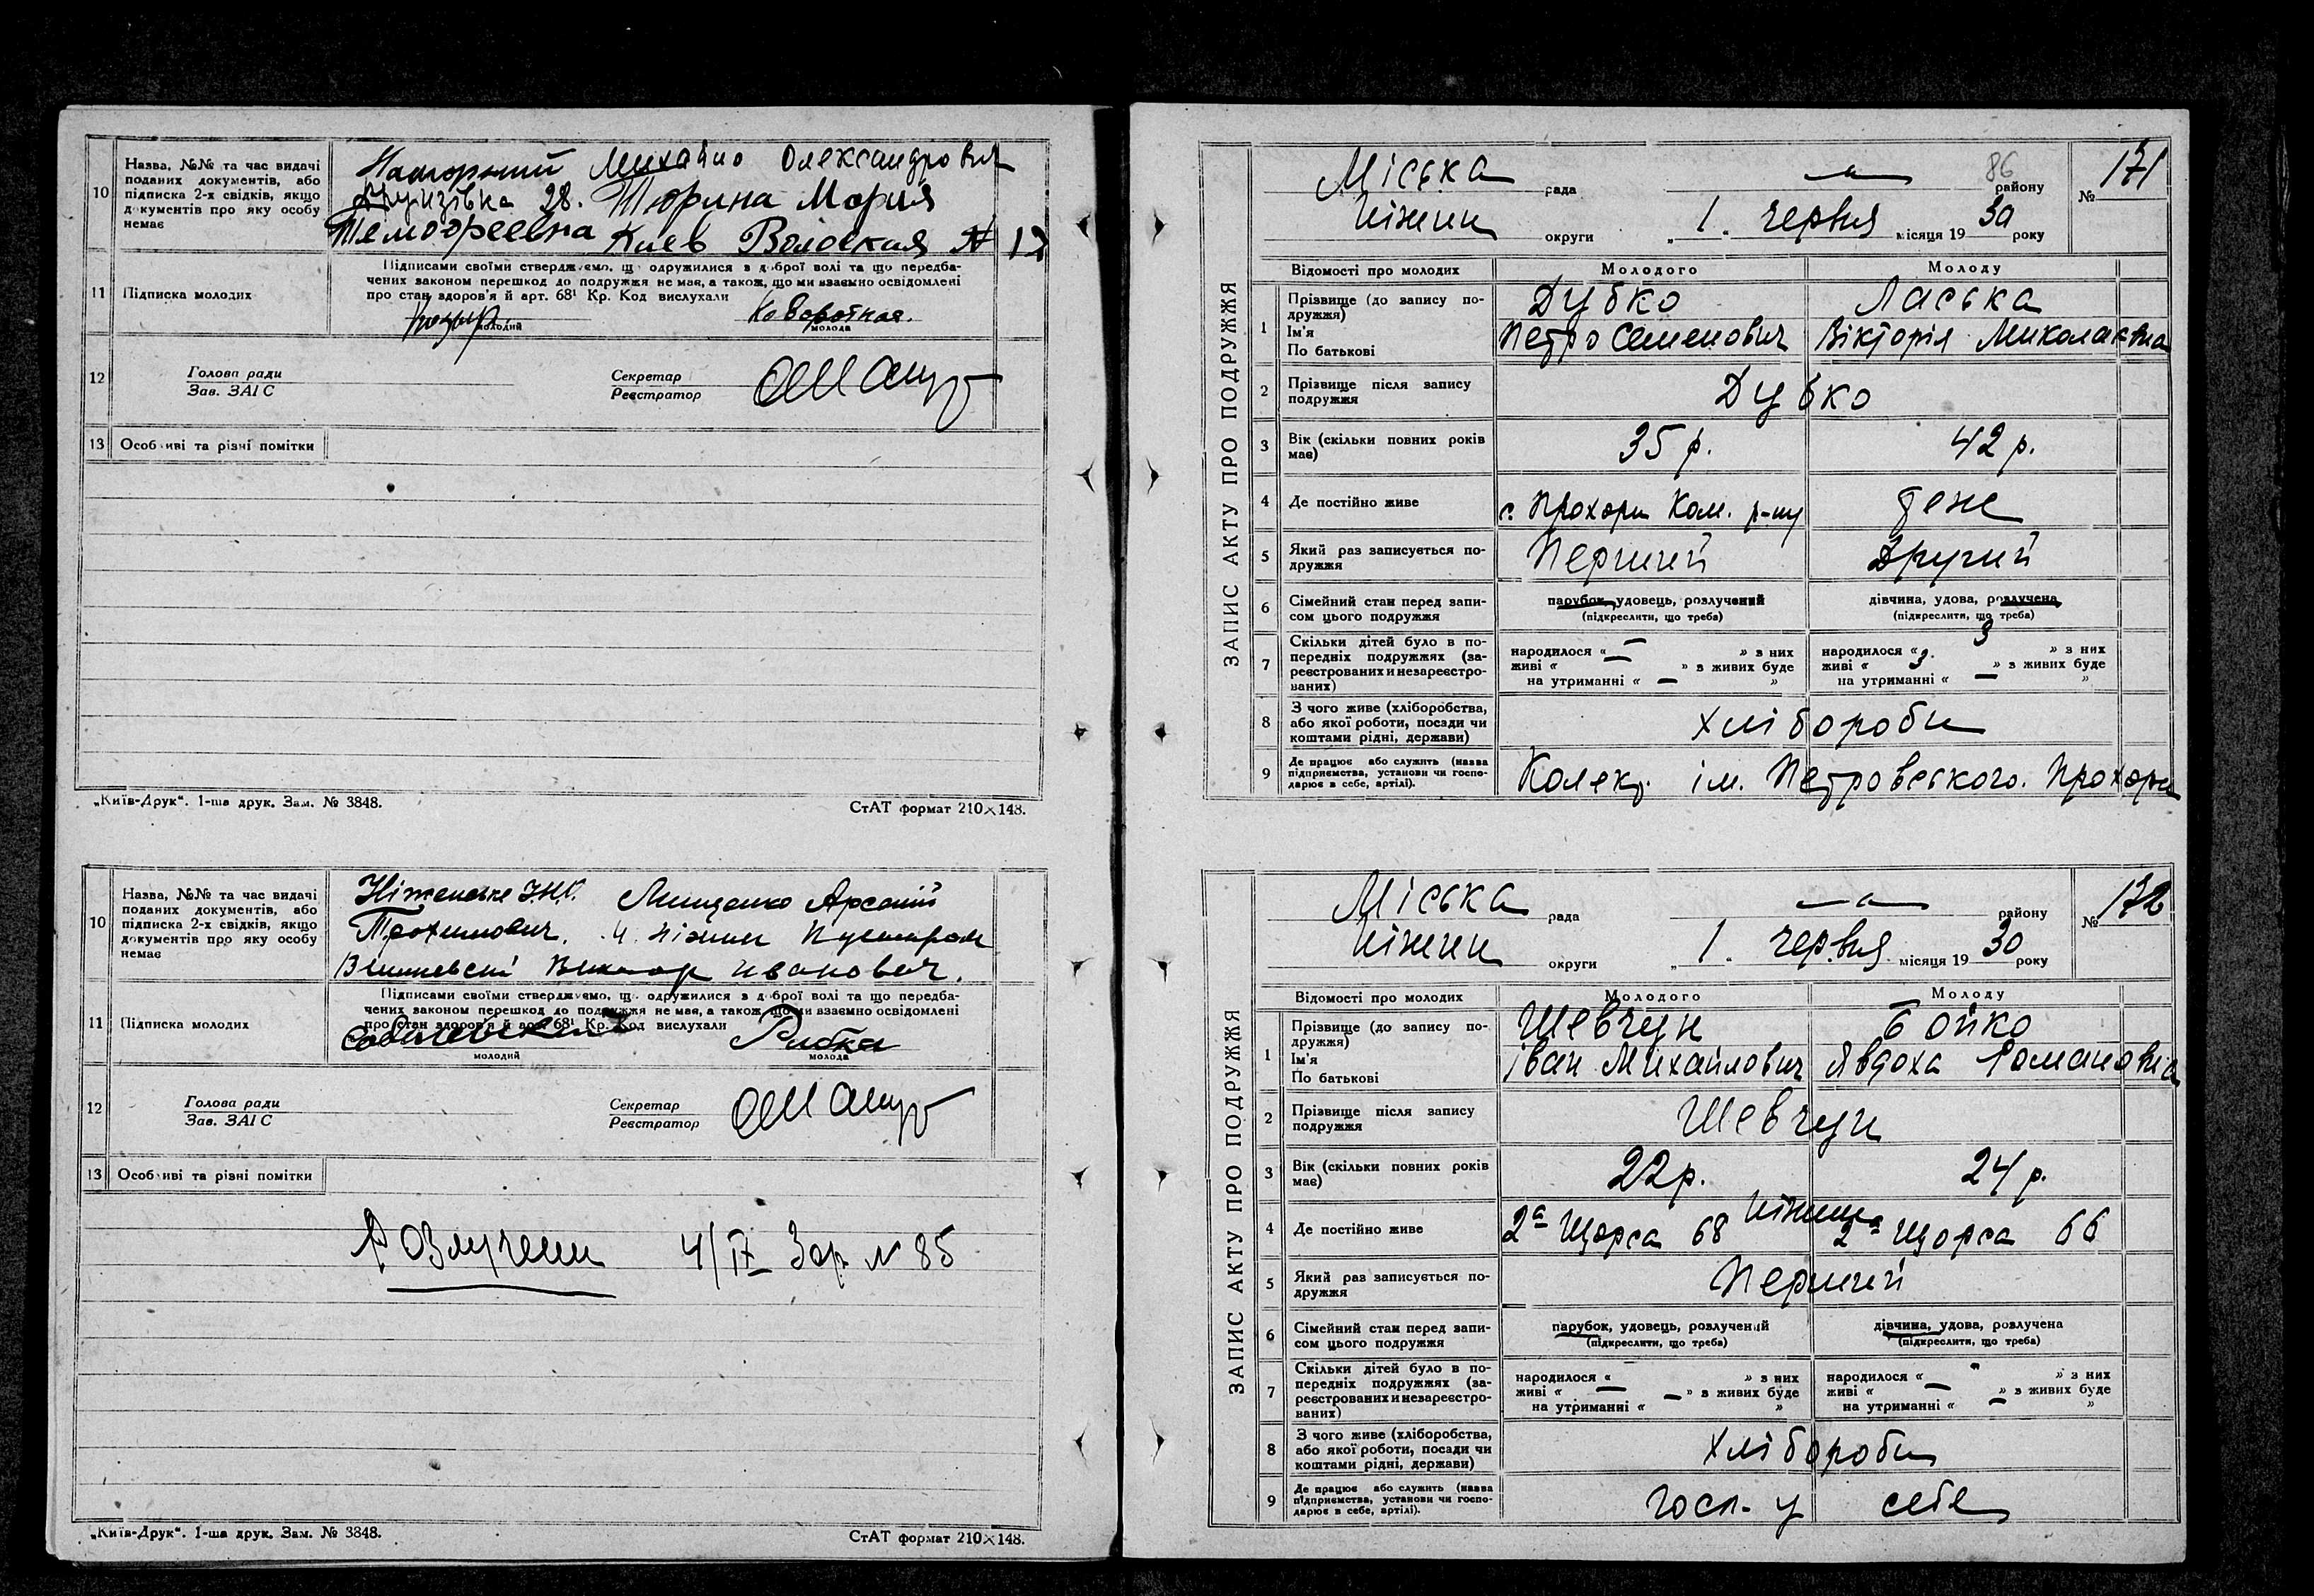 10
Назва, №№ та час видачі
поданих документів, або
підписка 2-х свідків, якщо
документів про яку особу
немає
Михайло Олександрович
28. Тюрина Мария
Киев № 12
11
Підписка молодих
Підписами своїми стверджуємо, що одружилися з доброї волі та що передба-
чених законом перешкод до подружжя не має, а також, що ми взаємно освідомлені
про стан здоров'я й арт. 68¹ Кр. Код вислухали
молодий
Коворотная.
молода
12
Голова ради
Зав. ЗАГС
Секретар
Реєстратор
13
Особливі та різні помітки
„Київ-Друк“. 1-ша друк. Зам. № 3848.
СтАТ формат 210×148.
10
Назва, №№ та час видачі
поданих документів, або
підписка 2-х свідків, якщо
документів про яку особу
немає
Арсеній
Трохимович.
Иванович.
11
Підписка молодих
Підписами своїми стверджуємо, що одружилися з доброї волі та що передба-
чених законом перешкод до подружжя не має, а також, що ми взаємно освідомлені
про стан здоров'я й арт. 68¹ Кр. Код вислухали
молодий
молода
12
Голова ради
Зав. ЗАГС
Секретар
Реєстратор
13
Особливі та різні помітки
Розлучени 4/IX Зар № 85
„Київ-Друк“. 1-ша друк. Зам. № 3848.
СтАТ формат 210×148.
ЗАПИС АКТУ ПРО ПОДРУЖЖЯ
86
Міська рада — району
№ 171
Ніжин округи „1“ червня місяця 1930 року
Відомості про молодих
Молодого
Молоду
1
Прізвище (до запису по-
дружжя)
Ім'я
По батькові
Дубко
Петро Семенович
Ласька
Вікторія Миколаєвна
2
Прізвище після запису
подружжя
Дубко
3
Вік (скільки повних років
має)
35 р.
42 р.
4
Де постійно живе
с. Прохори Ком. р-ну
теж
5
Який раз записується по-
дружжя
Перший
Другий
6
Сімейний стан перед запи-
сом цього подружжя
парубок, удовець, розлучений
(підкреслити, що треба)
дівчина, удова, розлучена
(підкреслити, що треба)
7
Скільки дітей було в по-
передніх подружжях (за-
реєстрованих и незареєстро-
ваних)
народилося « — » з них
живі « — » з живих буде
на утриманні « — »
народилося « 3 » з них
живі « 3 » з живих буде
на утриманні « — »
8
З чого живе (хліборобства,
або якої роботи, посади чи
коштами рідні, держави)
хлібороби
9
Де працює або служить (назва
підприємства, установи чи госпо-
дарює в себе, артілі).
Колект. ім. Петровського. Прохори
ЗАПИС АКТУ ПРО ПОДРУЖЖЯ
Міська рада — району
№ 172
Ніжин округи „1“ червня місяця 1930 року
Відомості про молодих
Молодого
Молоду
1
Прізвище (до запису по-
дружжя)
Ім'я
По батькові
Шевчун
Іван Михайлович
Бойко
Явдоха Романовна
2
Прізвище після запису
подружжя
Шевчун
3
Вік (скільки повних років
має)
22 р.
24 р.
4
Де постійно живе
Ніжин
2а Щорса 68
2а Щорса 66
5
Який раз записується по-
дружжя
Перший
6
Сімейний стан перед запи-
сом цього подружжя
парубок, удовець, розлучений
(підкреслити, що треба)
дівчина, удова, розлучена
(підкреслити, що треба)
7
Скільки дітей було в по-
передніх подружжях (за-
реєстрованих и незареєстро-
ваних)
народилося « » з них
живі « — » з живих буде
на утриманні « — »
народилося « » з них
живі « — » з живих буде
на утриманні « — »
8
З чого живе (хліборобства,
або якої роботи, посади чи
коштами рідні, держави)
хлібороби
9
Де працює або служить (назва
підприємства, установи чи госпо-
дарює в себе, артілі).
госп. у себе